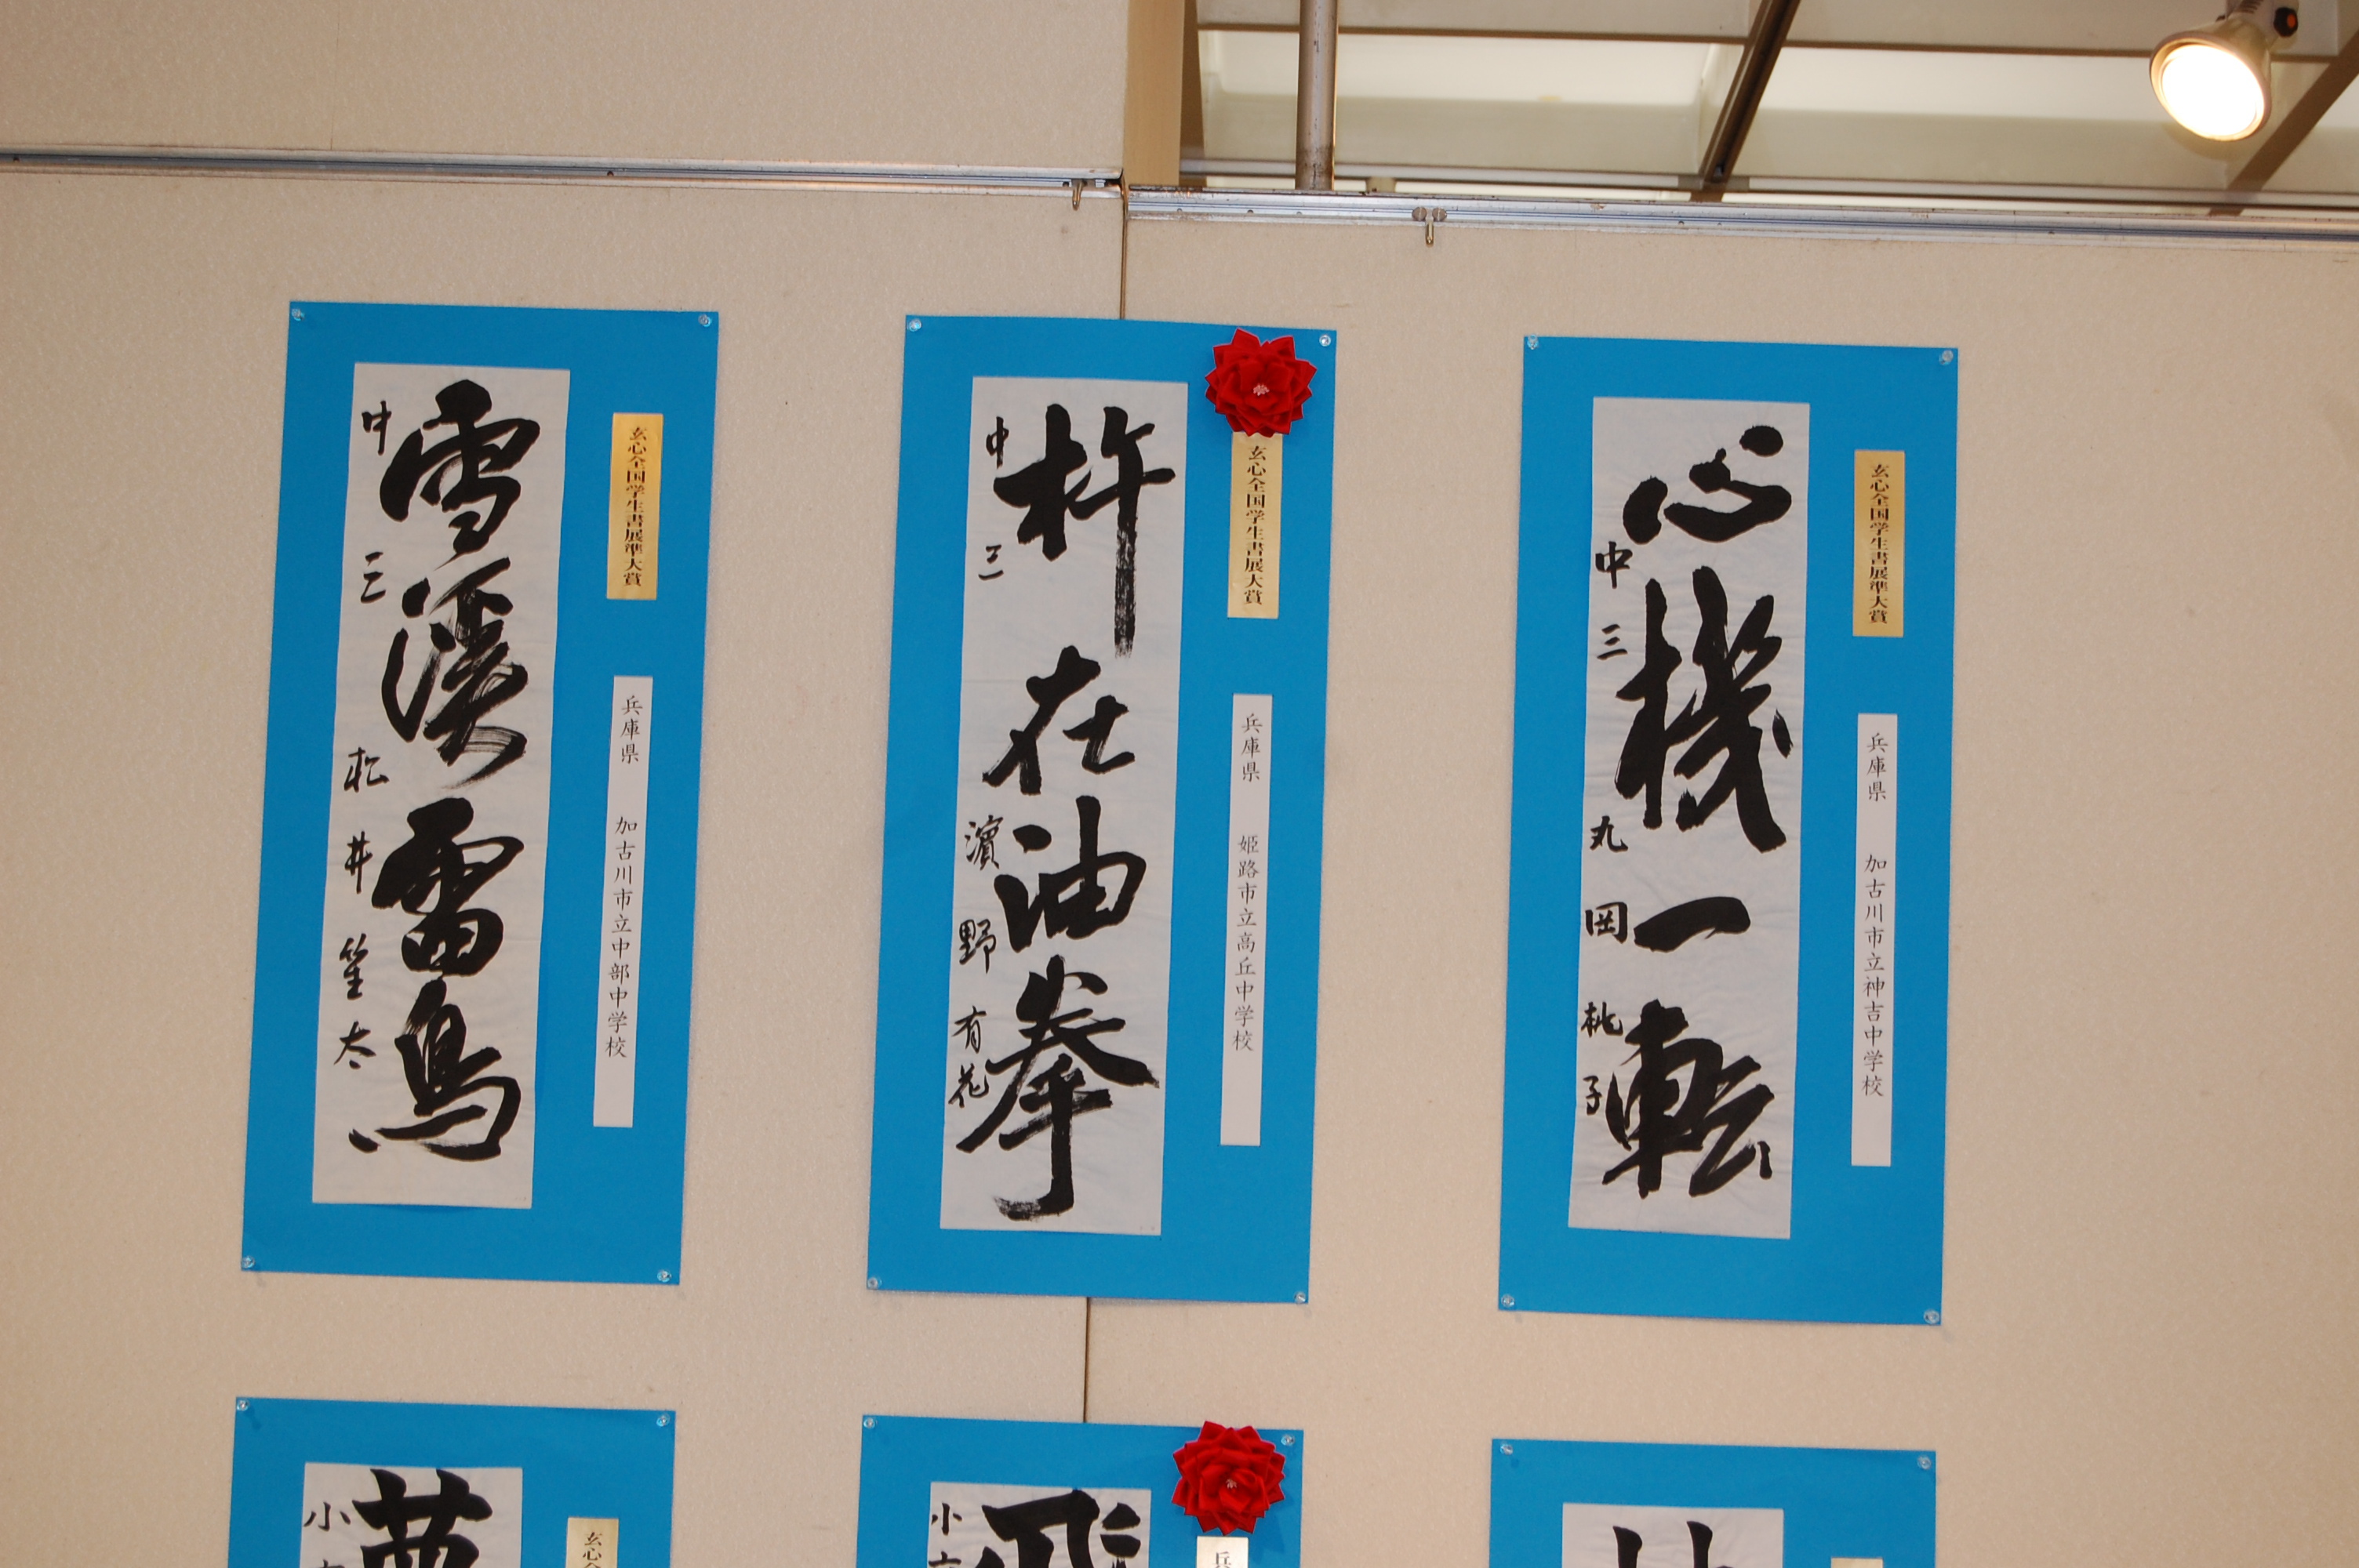 玄心全国学生書展準大賞
兵庫県 加古川市立神吉中学校
心機一転
中三 丸岡桃子
玄心全国学生書展大賞
兵庫県 姫路市立高丘中学校
杵在油拳
中三 濱野有花
玄心全国学生書展準大賞
兵庫県 加古川市立中部中学校
雪渓雷鳥
中三 松井笙太
飛
小
玄心
小